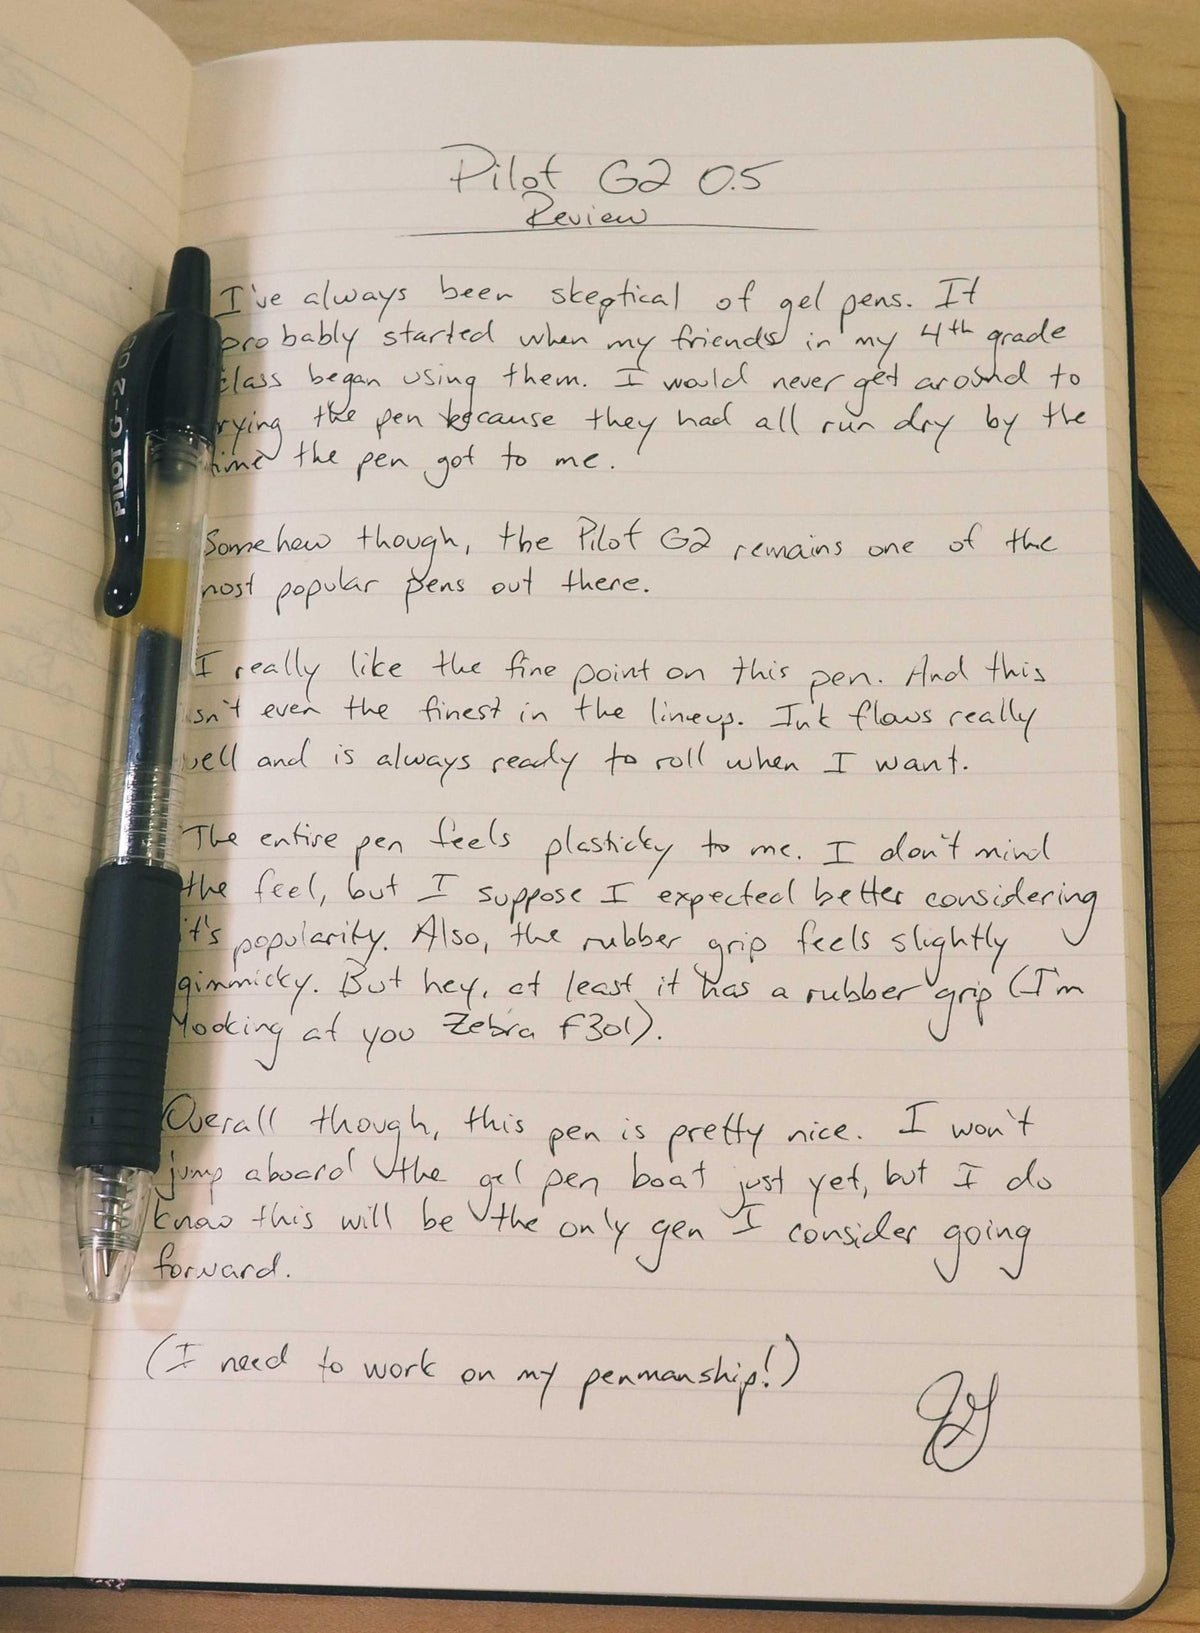 PILOT G-2 05
Pilot G2 0.5
Review
I've always been skeptical of gel pens. It
probably started when my friends in my 4th grade
class began using them. I would never get around to
trying the pen because they had all run dry by the
time the pen got to me.
Somehow though, the Pilot G2 remains one of the
most popular pens out there.
I really like the fine point on this pen. And this
isn't even the finest in the lineup. Ink flows really
well and is always ready to roll when I want.
The entire pen feels plasticky to me. I don't mind
the feel, but I suppose I expected better considering
it's popularity. Also, the rubber grip feels slightly
gimmicky. But hey, at least it has a rubber grip (I'm
looking at you Zebra F301).
Overall though, this pen is pretty nice. I won't
jump aboard the gel pen boat just yet, but I do
know this will be the only gen I consider going
forward.
(I need to work on my penmanship!)